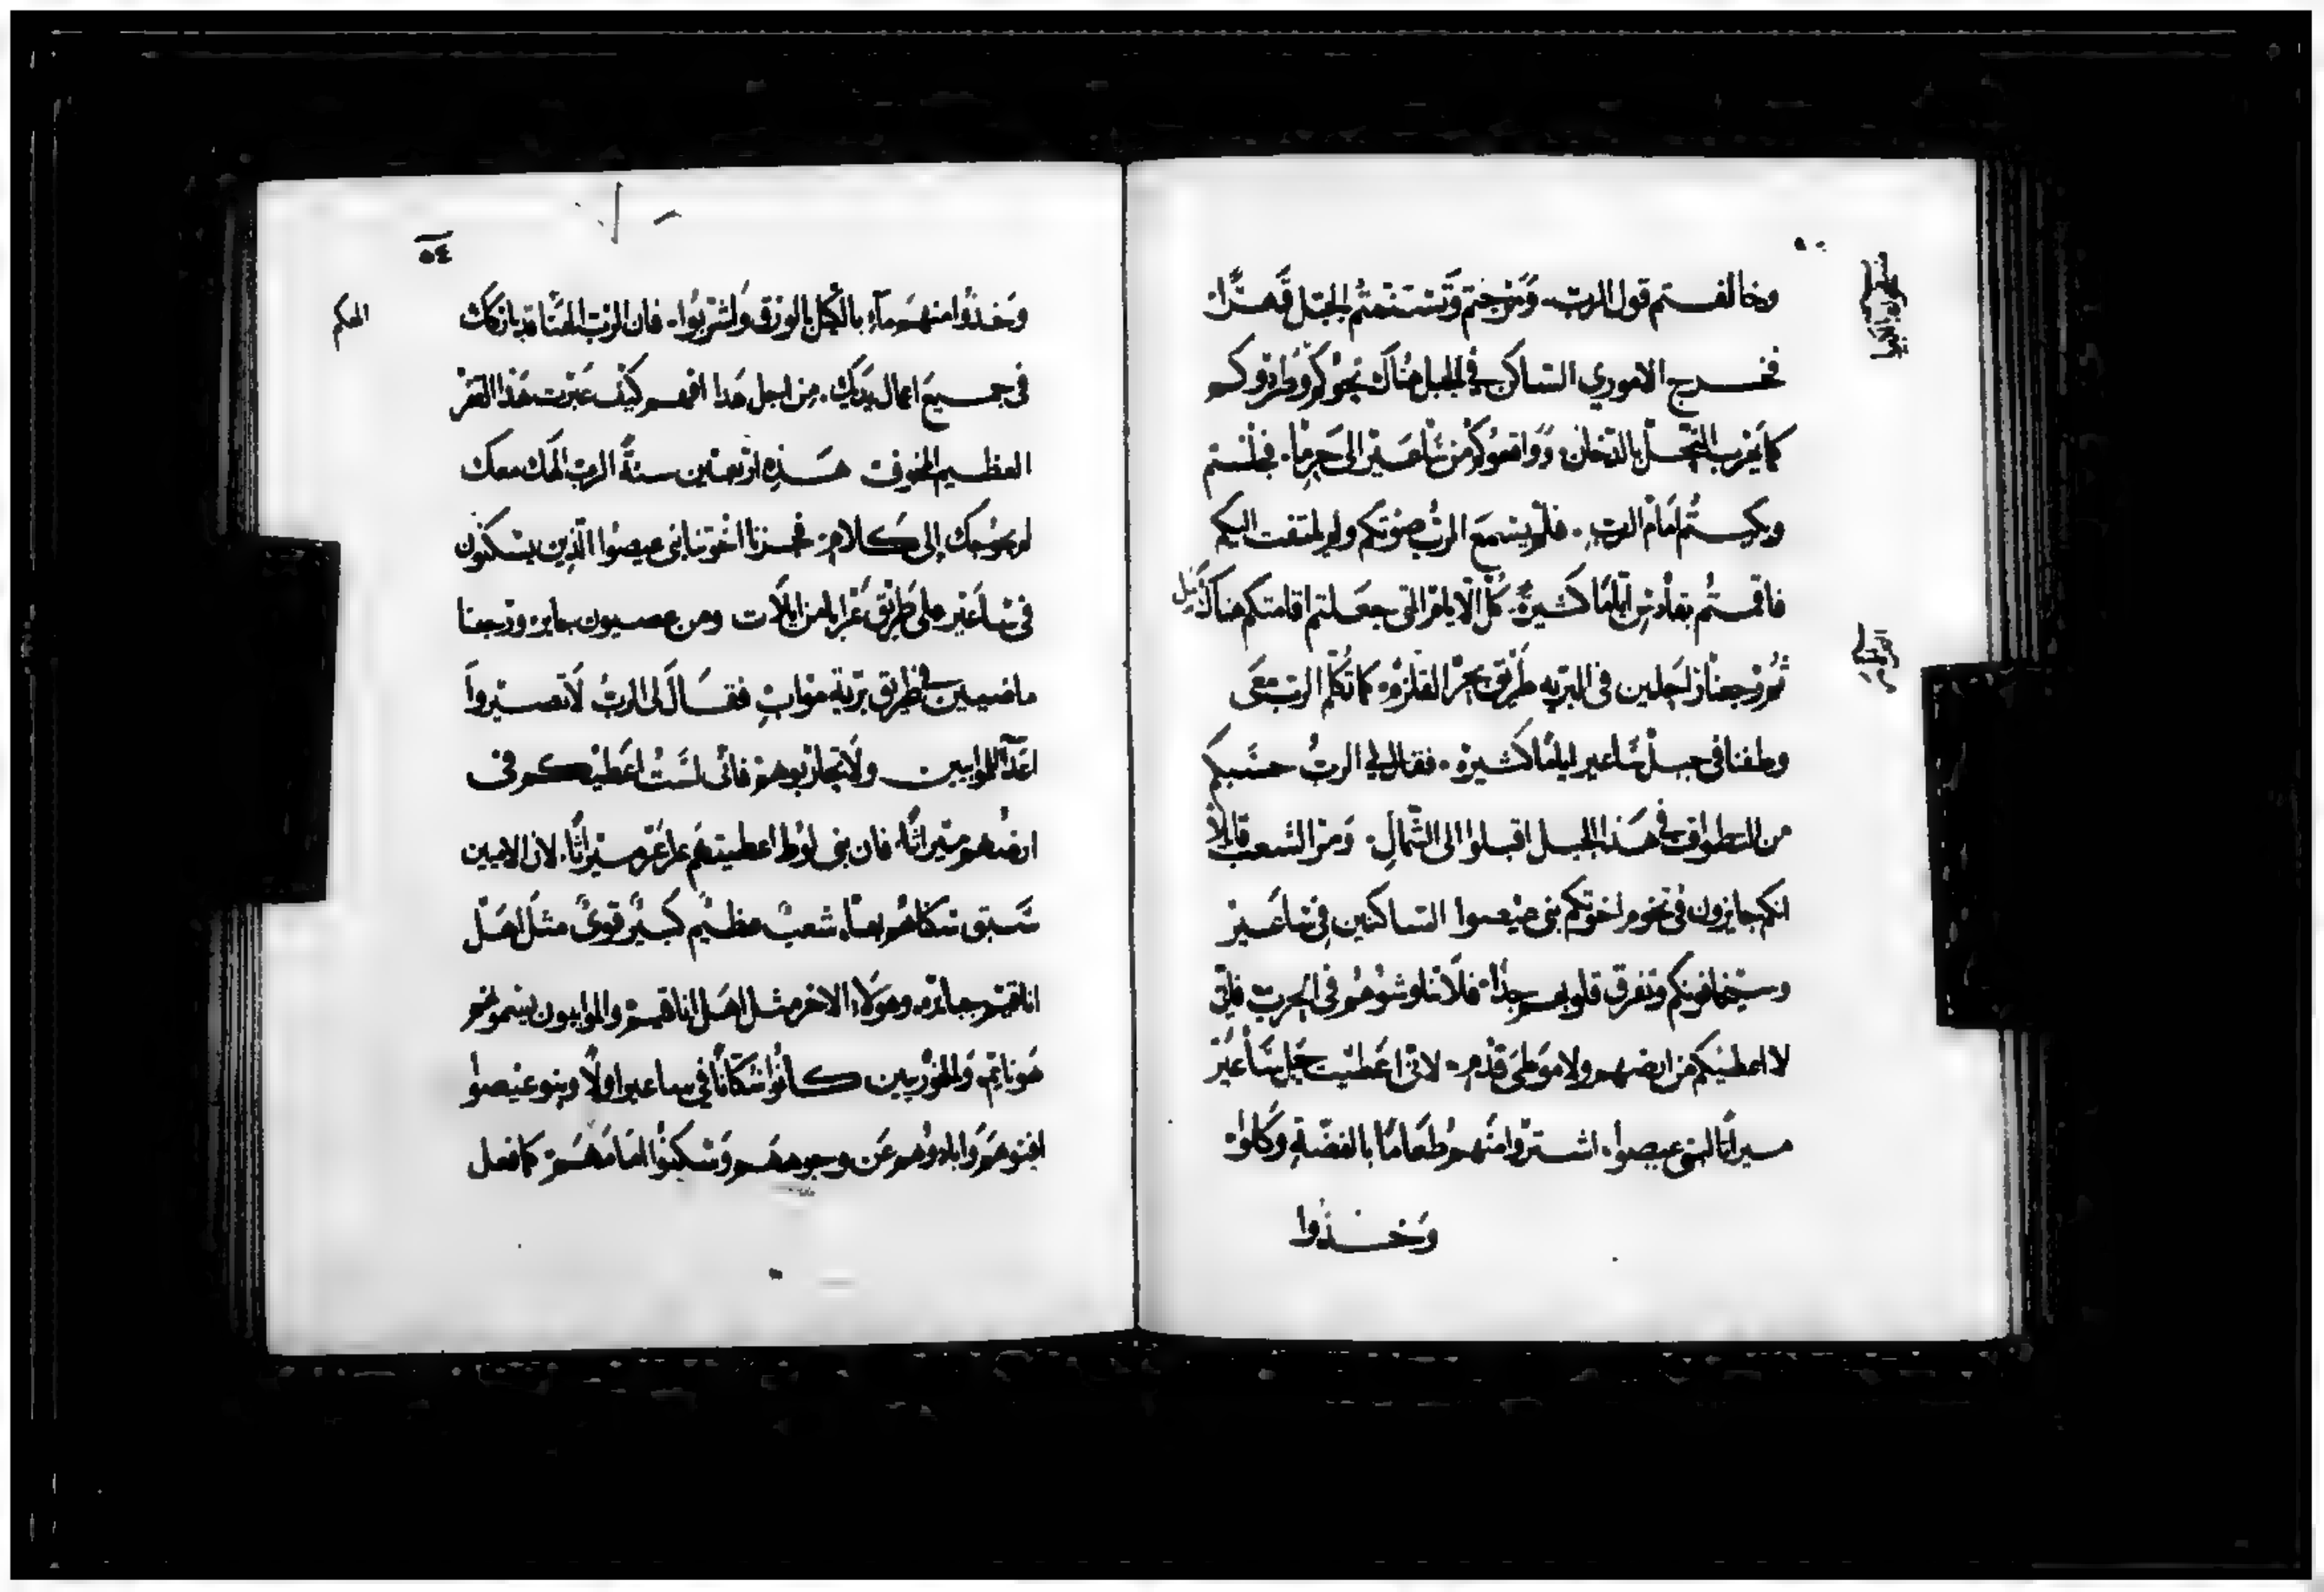 وخالفتم قول الرب. ومرجتم وتسنمتم الجبل قهرًا
فخرج الاموري الساكن في الجبل هناك نحوكم وطردوكم
كما يهرب النحل بالدخان. وواقعوكم من ساعير الى حرما. فجلستم
وبكيتم امام الرب. فلم يسمع الرب صوتكم ولم يلتفت اليكم
فاقمتم بقادس ايامًا كثيرةً. كل الايام التي جعلتم اقامتكم هناك
ثم رجعنا راحلين في البريه طريق بحر القلزم. كما تكلم الرب معي
وطفنا في جبل ساعير ايامًا كثيرة. فقال لي الرب حسبكم
من التطواف في هذا الجبل اقبلوا الى الشمال. ومر الشعب قايلًا
انكم جايزون في تخوم اخوتكم بني عيصوا الساكنين في ساعير
وسيخافونكم وتفرق قلوبهم جدًا. فلا تناوشوهم في الحرب فاني
لا اعطيكم من ارضهم ولا موطى قدم. لاني اعطيت جبل ساعير
ميراثًا لبني عيصوا. اشتروا منهم طعامًا بالفضة وكلوا.
وخذوا
٥٤
وخذوا منهم ماء بالكيل بالورق واشربوا. فان الرب الهنا قد باركك
الهكم
في جميع اعمال يديك. من اجل هذا افهم كيف عبرت هذا القفر
العظيم المخوف هذه اربعين سنةً الرب الهك معك
لم يحوجك الى كلام. فجزنا اخوتنا بني عيصوا الذين يسكنون
في ساعير على طريق عرابا من ايلات ومن عصيون جابر. ورجعنا
ماضيين في طريق برية مواب فقال لي الرب لا تصيروا
اعدآ للموابيين ولا تحاربوهم فاني لست اعطيكم في
ارضهم ميراثًا. فان بني لوط اعطيتهم عراعر ميراثًا. لان الاميين
سبق سكناهم بها. شعب عظيم كبير قوي مثل اهل
اناقيم جبابره. وهولاء الاخر مثل اهل اناقيم والموابيون يسموهم
هوناتم. والحوريين كانوا سكانًا في ساعير اولًا وبنو عيصوا
افنوهم وابادوهم عن وجوههم وسكنوا امامهم. كما فعل